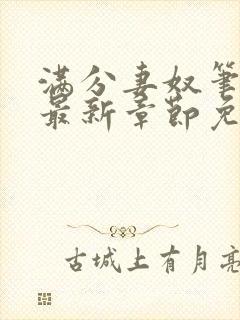 满分妻奴笔
最新章节免
古城上有月亮